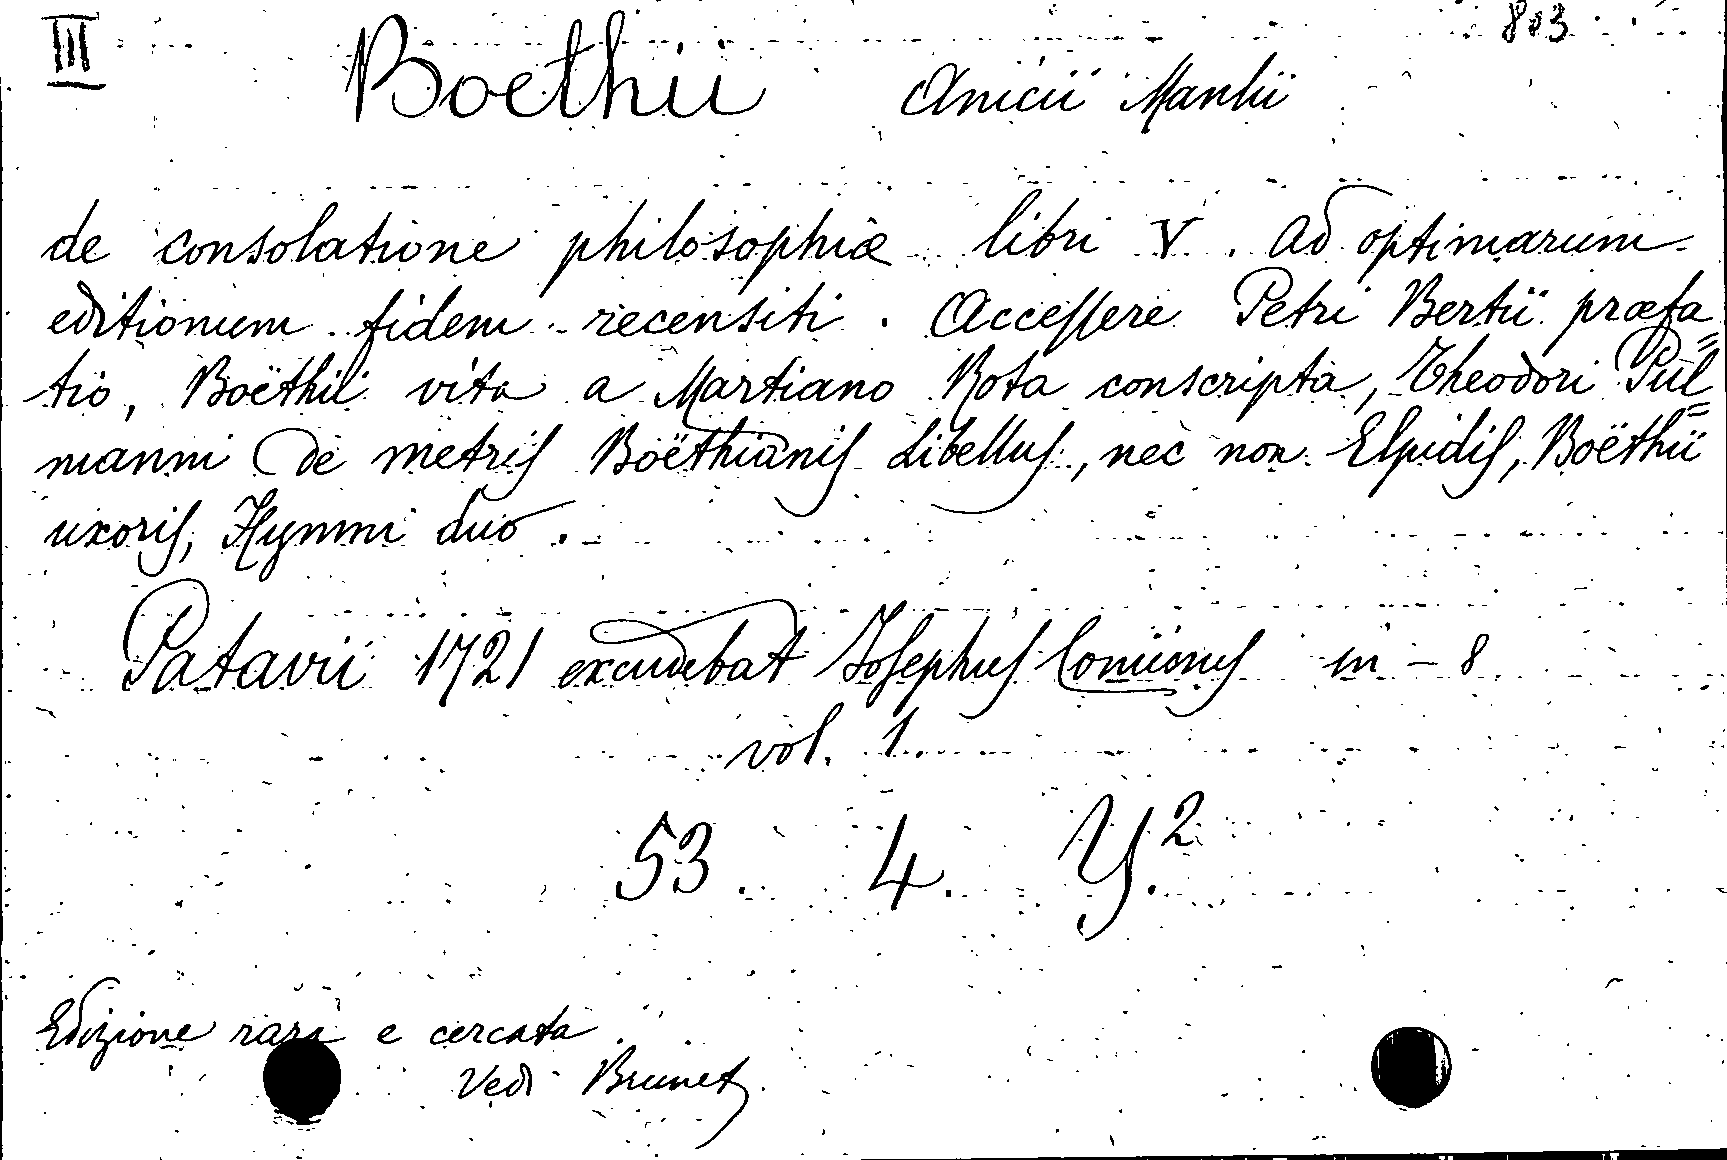 III 803
Boethii Anicii Manlii
de consolatione philosophiæ libri V. ad optimarum
editionum fidem recensiti. Accessere Petri Bertii præfa=
tio, Boëthii vita a Martiano Rota conscripta, Theodori Pul=
manni de metris Boëthianis Libellus, nec non Elpidis, Boëthii
uxoris, Hymni duo.
Patavii 1721 excudebat Josephus Cominus in-8
vol. 1.
53. 4. Y.²
Edizione rara e cercata
Vedi Brunet